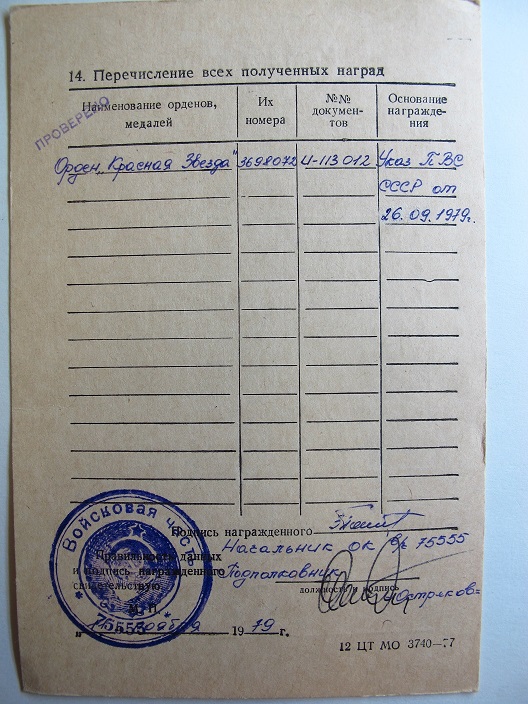 14. Перечисление всех полученных наград
ПРОВЕРЕНО
Наименование орденов, медалей
Их номера
№№ документов
Основание награждения
Орден „Красная Звезда"
3698072
И-113012
Указ ПВС
СССР от
26.09.1979г.
Подпись награжденного
Войсковая часть
Правильность данных
и подпись награжденного
свидетельствую
Начальник ОК в/ч 75555
Подполковник
должность и подпись
М. П.
75555
ноября 1979 г.
12 ЦТ МО 3740—77